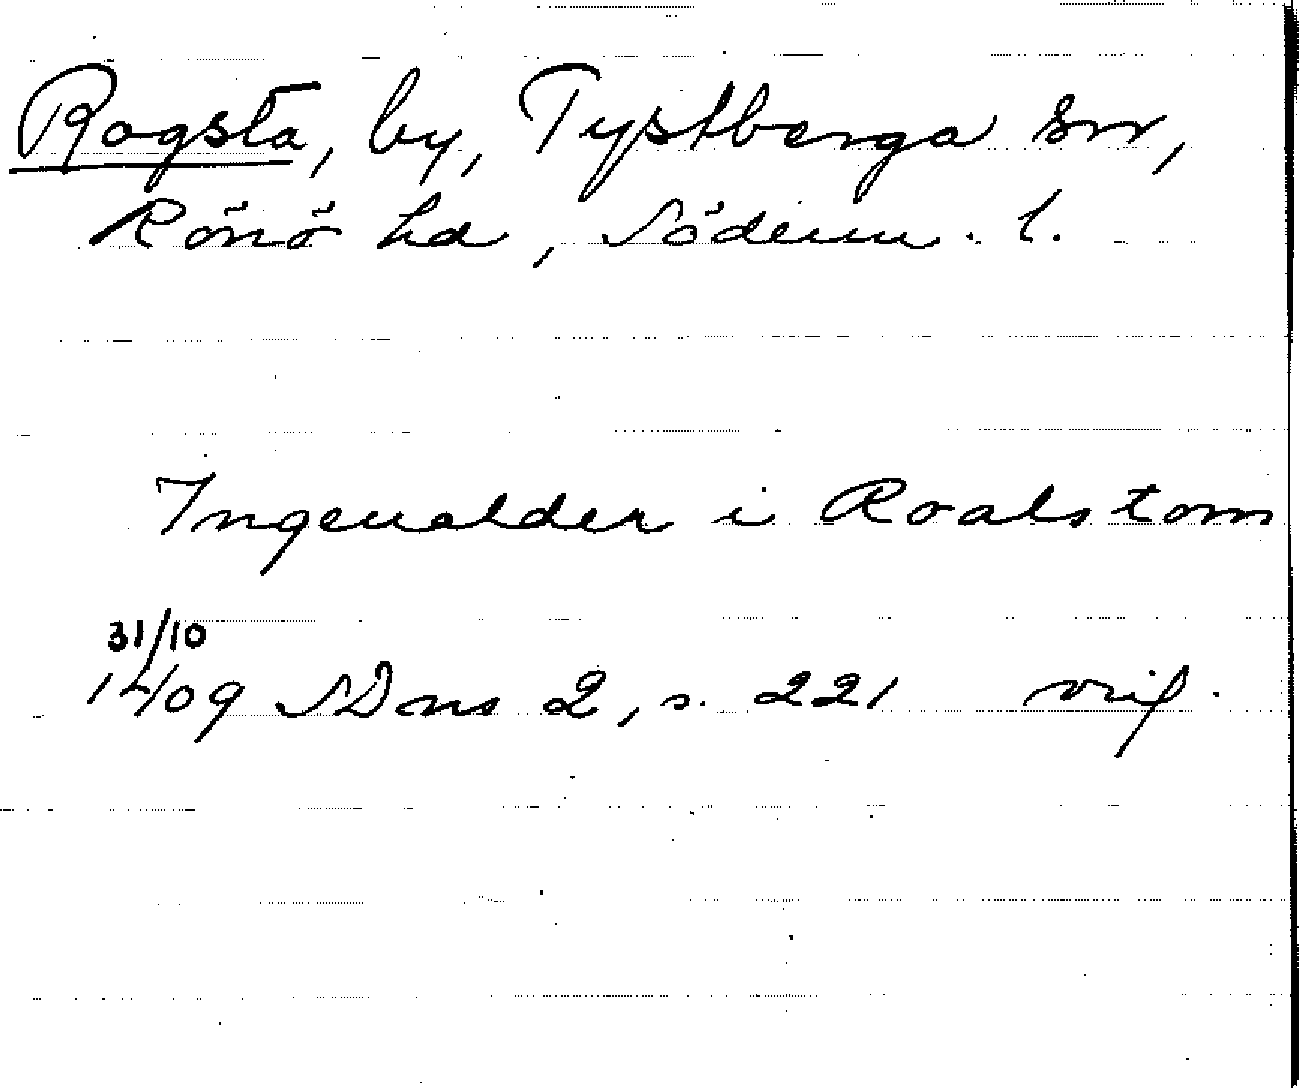 Rogsta, by, Tystberga sn,
Rönö hd, Söderm. l.
Ingeualder i Roalstom
31/10
1409 SDns 2, s. 221 vrif.